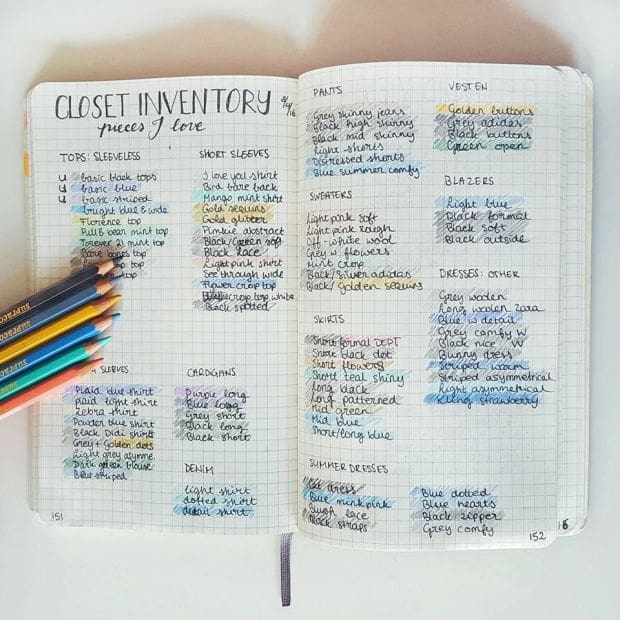 CLOSET INVENTORY
pieces I love
TOPS: SLEEVELESS
U basic black tops
U basic blue
U basic striped
bright blue & wide
Florence top
Pull & bear mint top
Forever 21 mint top
Bare bones top
top
top
SLEEVES
Plaid blue shirt
Plaid light shirt
Zebra shirt
Powder blue shirt
Black Didi shirt
Grey + Golden dots
Light grey asymme.
Dark green blouse
Blue striped
151
SHORT SLEEVES
I love you shirt
Bird bare back
Mango mint shirt
Gold sequins
Gold glitter
Pimkie abstract
Black/Green soft
Black lace
Light pink shirt
See through wide
Flower crop top
crop top white
Black spotted
CARDIGANS
Purple long
Blue long
Grey short
Black long
Black short
DENIM
light shirt
dotted shirt
detail shirt
PANTS
Grey skinny jeans
Black high skinny
Black mid skinny
Light shorts
Distressed shorts
Blue summer comfy
SWEATERS
Light pink soft
Light pink rough
Off-white wool
Grey w flowers
Mint crop
Black/Silver adidas
Black/Golden sequins
SKIRTS
Short formal DEPT
Short black dot
Short flowers
Short teal shiny
Long black
Long patterned
Mid green
Mid blue
Short/long blue
SUMMER DRESSES
Cat dress
Blue mink pink
Blush lace
Black straps
Blue dotted
Blue hearts
Black zipper
Grey comfy
VESTEN
Golden buttons
Grey adidas
Black buttons
Green open
BLAZERS
Light blue
Black formal
Black soft
Black outside
DRESSES: OTHER
Grey woolen
Long woolen Zara
Blue w detail
Grey comfy W
Black nice W
Bunny dress
Striped warm
Striped asymmetrical
Light asymmetrical
strawberry
152